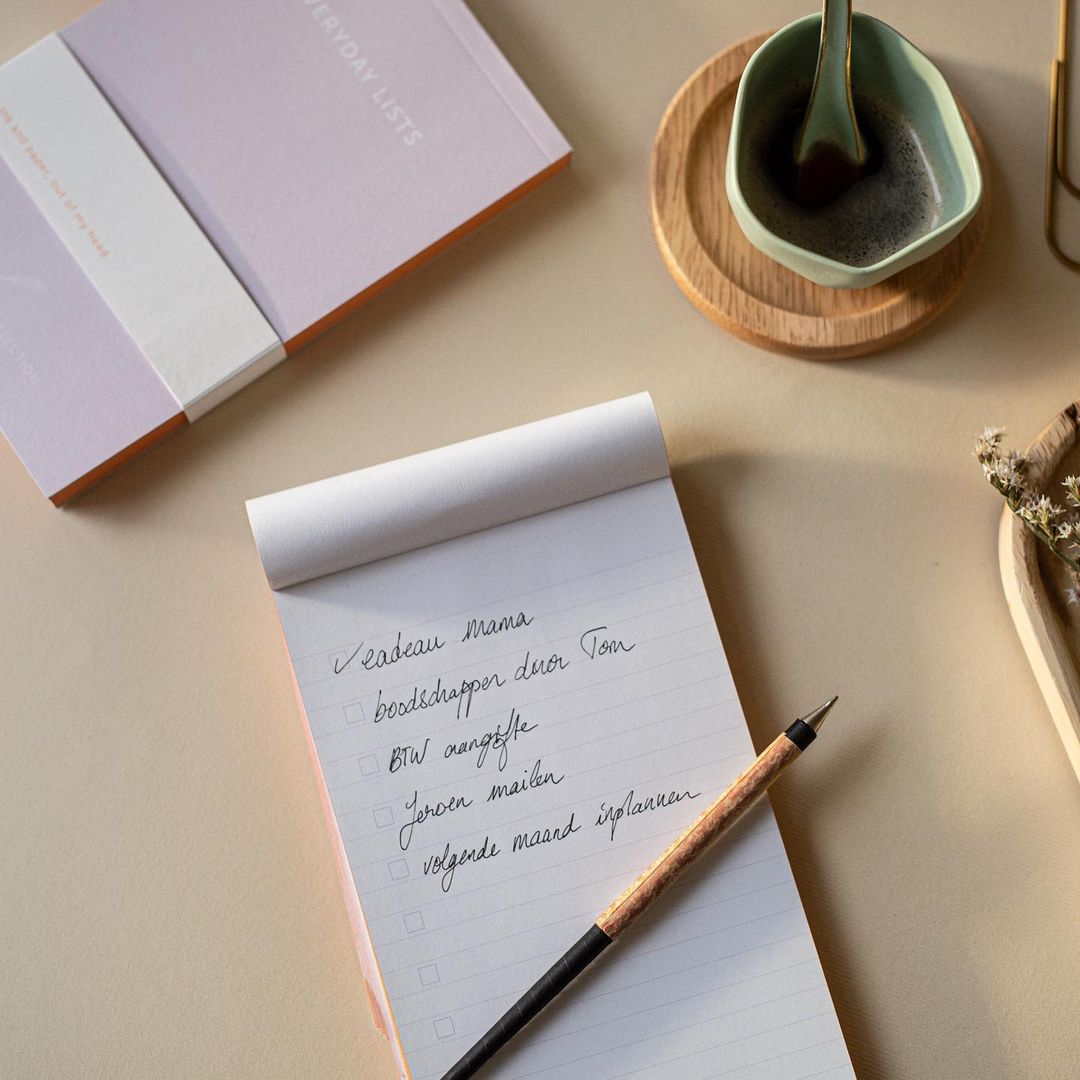 EVERYDAY LISTS
ink and paper, out of my head
✓ cadeau mama
boodschappen door Tom
BTW aangifte
Jeroen mailen
volgende maand inplannen